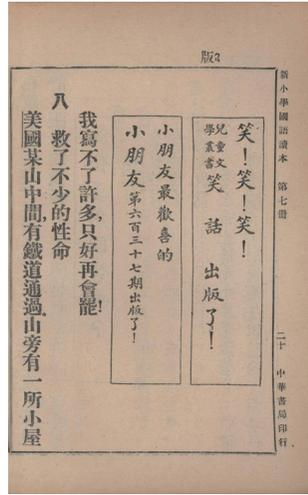 新小學國語讀本　第七冊
二十　中華書局印行
版2
笑！笑！笑！
兒童文學叢書 笑話 出版了！
小朋友最歡喜的
小朋友第六百三十七期出版了！
我寫不了許多，只好再會罷！
八　救了不少的性命
美國某山中間，有鐵道通過，山旁有一所小屋